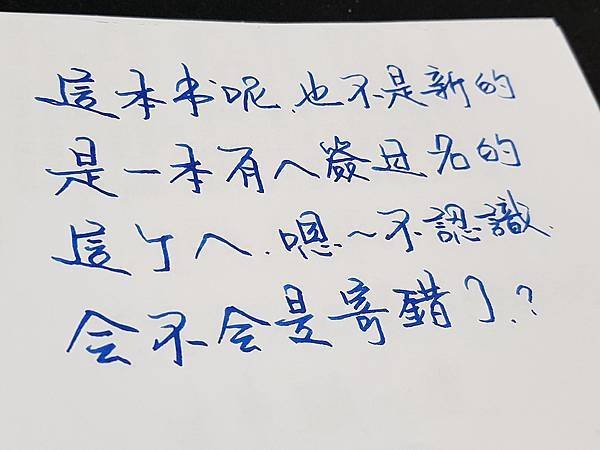 這本书呢.也不是新的
是一本有人簽过名的
這个人.嗯~不認識.
会不会是寄錯了.?